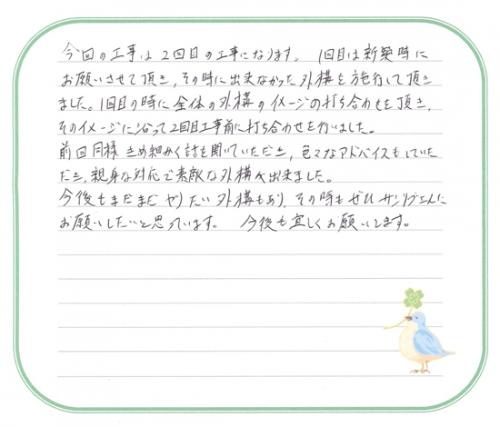 今回の工事は2回目の工事になります。 1回目は新築時に
お願いさせて頂き、その時に出来なかった外構を施行して頂き
ました。1回目の時に全体の外構のイメージの打ち合わせを頂き、
そのイメージに沿って2回目工事前に打ち合わせを行いました。
前回同様きめ細かく話を聞いていただき、色々なアドバイスもしていた
だき、親身な対応で素敵な外構が出来ました。
今後もまだまだやりたい外構もあり、その時もぜひサンリブさんに
お願いしたいと思っています。 今後も宜しくお願いします。